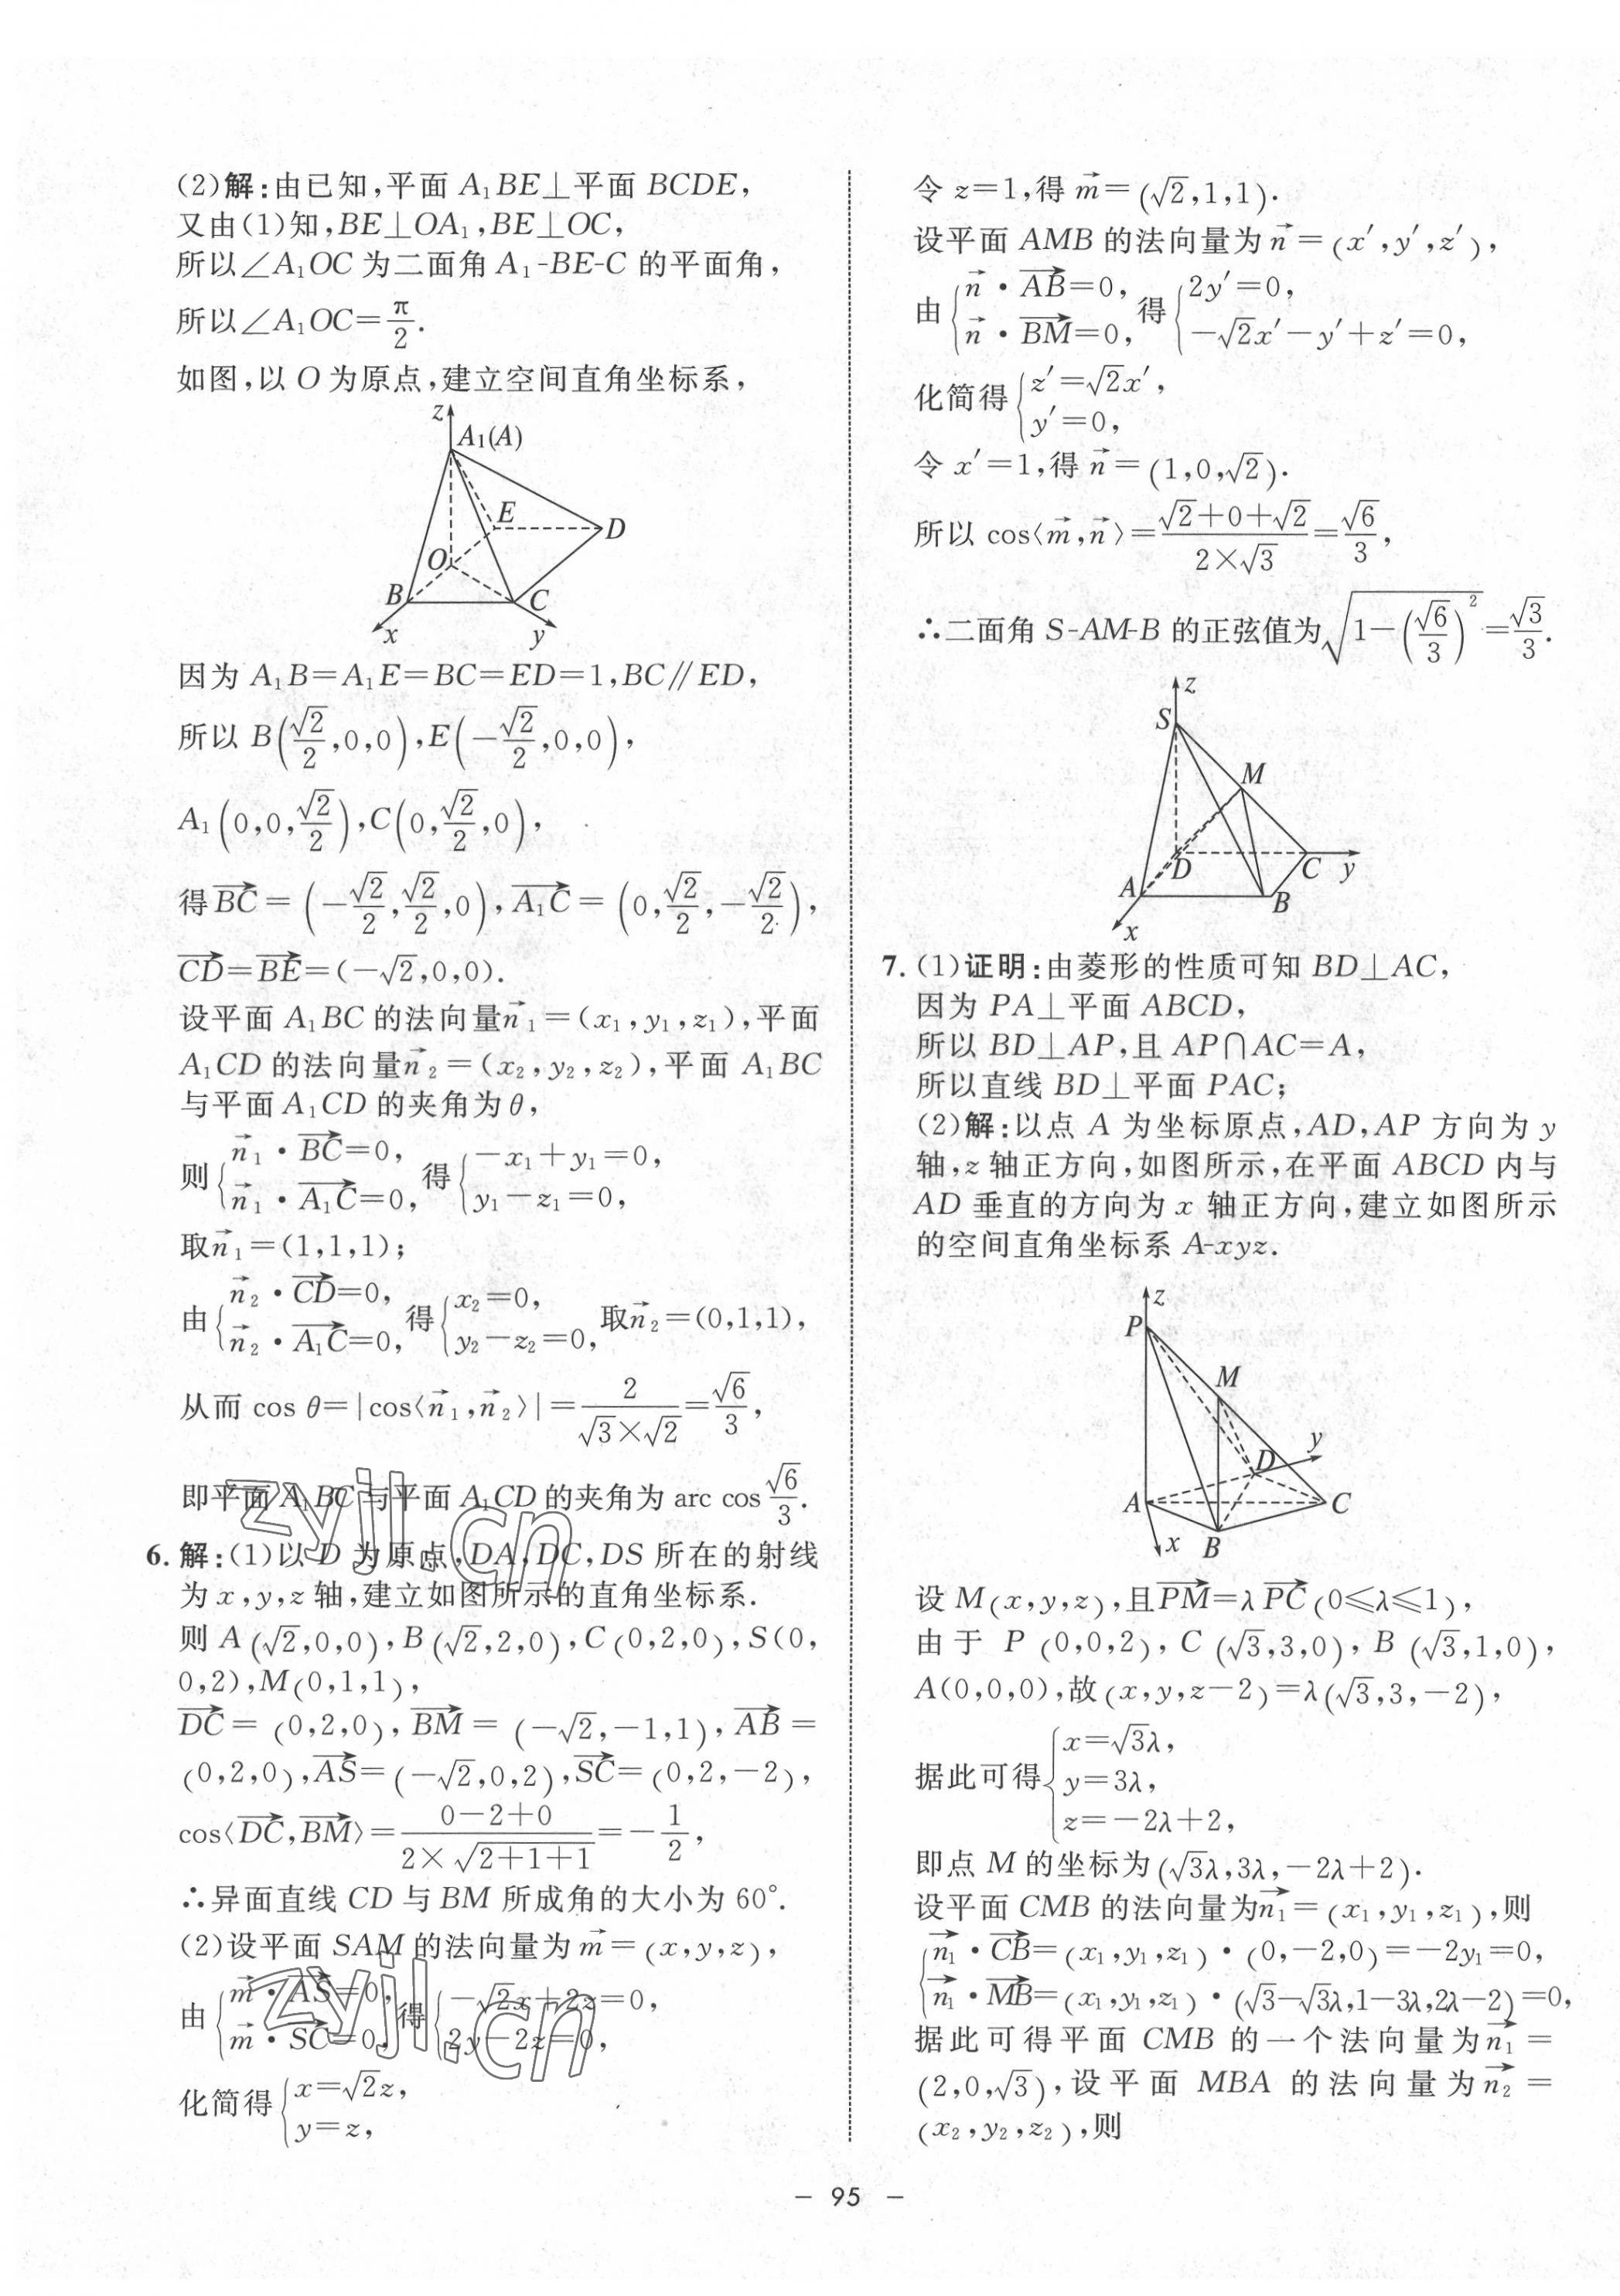 (2)解:由已知,平面 A₁BE⊥平面 BCDE,
又由(1)知,BE⊥OA₁,BE⊥OC,
所以∠A₁OC 为二面角 A₁-BE-C 的平面角,
所以∠A₁OC=π/2.
如图,以 O 为原点,建立空间直角坐标系,
z
A₁(A)
E
D
O
B
C
x
y
因为 A₁B=A₁E=BC=ED=1,BC∥ED,
所以 B(√2/2,0,0),E(-√2/2,0,0),
A₁(0,0,√2/2),C(0,√2/2,0),
得BC→=(-√2/2,√2/2,0),A₁C→=(0,√2/2,-√2/2),
CD→=BE→=(-√2,0,0).
设平面 A₁BC 的法向量n→₁=(x₁,y₁,z₁),平面
A₁CD 的法向量n→₂=(x₂,y₂,z₂),平面 A₁BC
与平面 A₁CD 的夹角为θ,
则{n→₁·BC→=0, n→₁·A₁C→=0, 得{-x₁+y₁=0, y₁-z₁=0,
取n→₁=(1,1,1);
由{n→₂·CD→=0, n→₂·A₁C→=0, 得{x₂=0, y₂-z₂=0, 取n→₂=(0,1,1),
从而 cos θ=|cos⟨n→₁,n→₂⟩|=2/(√3×√2)=√6/3,
即平面 A₁BC 与平面 A₁CD 的夹角为 arc cos √6/3.
6. 解:(1)以 D 为原点,DA,DC,DS 所在的射线
为 x,y,z 轴,建立如图所示的直角坐标系.
则 A(√2,0,0),B(√2,2,0),C(0,2,0),S(0,
0,2),M(0,1,1),
DC→=(0,2,0),BM→=(-√2,-1,1),AB→=
(0,2,0),AS→=(-√2,0,2),SC→=(0,2,-2),
cos⟨DC→,BM→⟩=(0-2+0)/(2×√(2+1+1))=-1/2,
∴异面直线 CD 与 BM 所成角的大小为 60°.
(2)设平面 SAM 的法向量为m→=(x,y,z),
由{m→·AS→=0, m→·SC→=0, 得{-√2x+2z=0, 2y-2z=0,
化简得{x=√2z, y=z,
令 z=1,得m→=(√2,1,1).
设平面 AMB 的法向量为n→=(x′,y′,z′),
由{n→·AB→=0, n→·BM→=0, 得{2y′=0, -√2x′-y′+z′=0,
化简得{z′=√2x′, y′=0,
令 x′=1,得n→=(1,0,√2).
所以 cos⟨m→,n→⟩=(√2+0+√2)/(2×√3)=√6/3,
∴二面角 S-AM-B 的正弦值为√(1-(√6/3)²)=√3/3.
z
S
M
D
C
y
A
B
x
7. (1)证明:由菱形的性质可知 BD⊥AC,
因为 PA⊥平面 ABCD,
所以 BD⊥AP,且 AP∩AC=A,
所以直线 BD⊥平面 PAC;
(2)解:以点 A 为坐标原点,AD,AP 方向为 y
轴,z 轴正方向,如图所示,在平面 ABCD 内与
AD 垂直的方向为 x 轴正方向,建立如图所示
的空间直角坐标系 A-xyz.
z
P
M
y
D
A
C
x
B
设 M(x,y,z),且PM→=λPC→(0≤λ≤1),
由于 P(0,0,2),C(√3,3,0),B(√3,1,0),
A(0,0,0),故(x,y,z-2)=λ(√3,3,-2),
据此可得{x=√3λ, y=3λ, z=-2λ+2,
即点 M 的坐标为(√3λ,3λ,-2λ+2).
设平面 CMB 的法向量为n₁→=(x₁,y₁,z₁),则
{n₁→·CB→=(x₁,y₁,z₁)·(0,-2,0)=-2y₁=0,
n₁→·MB→=(x₁,y₁,z₁)·(√3-√3λ,1-3λ,2λ-2)=0,
据此可得平面 CMB 的一个法向量为n₁→=
(2,0,√3),设平面 MBA 的法向量为n₂→=
(x₂,y₂,z₂),则
— 95 —
zyjl.cn
zyjl.cn